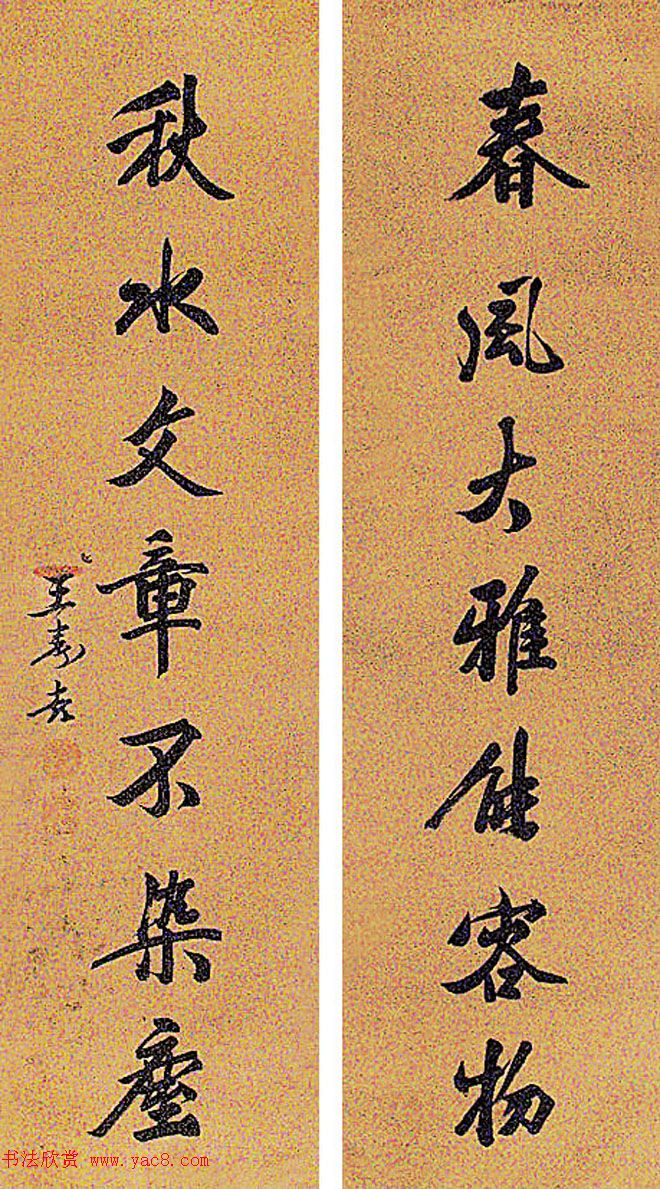 春風大雅能容物
秋水文章不染塵
王壽彭
书法欣赏 www.yac8.com